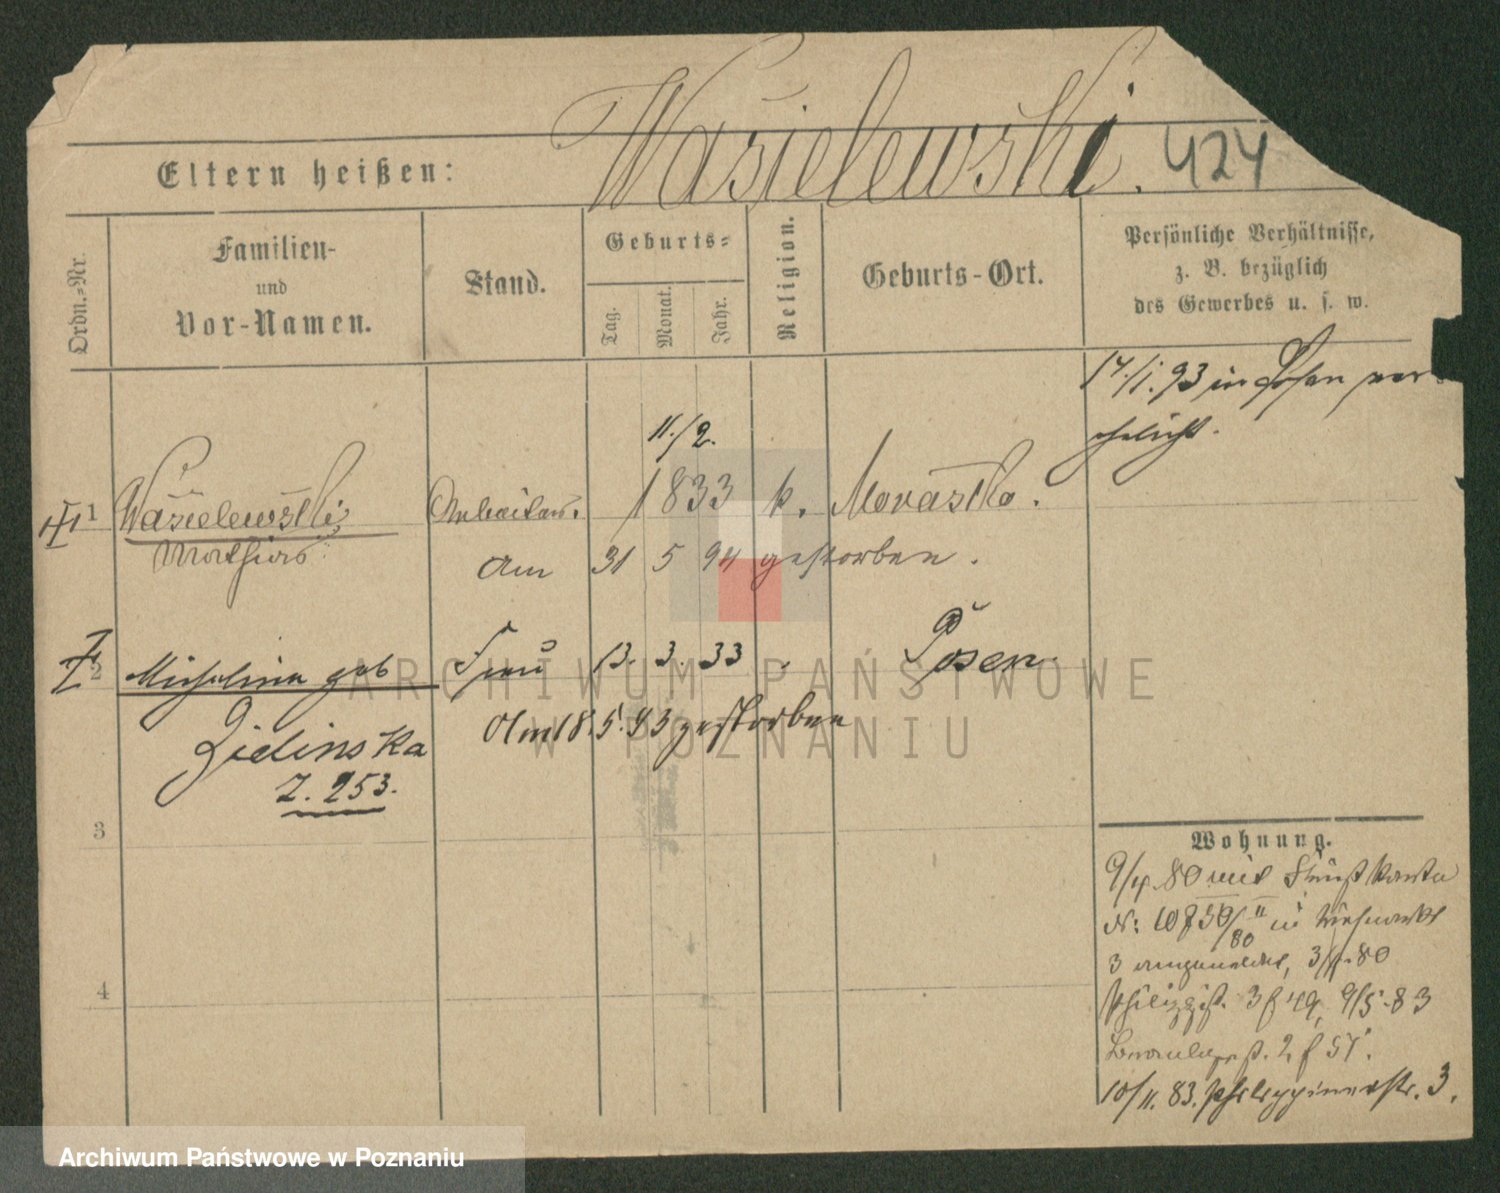 Wasielewski. 424
Eltern heißen:
Ordn.=Nr.
Familien-
und
Vor-Namen.
Stand.
Geburts=
Tag.
Monat.
Jahr.
Religion.
Geburts-Ort.
Persönliche Verhältnisse,
z. B. bezüglich
des Gewerbes u. s. w.
17./1. 93 in Posen ver
ehelicht.
11./2.
1 Wasielewski, Arbeiter. 1833 k. Morasko.
Mathias
am 31 5 94 gestorben.
2 Michalina geb Frau 13. 3. 33 Posen
Zielinska
Am 18. 5. 93 gestorben
Z. 253.
3
4
Wohnung.
9/4. 80 mit
N: in Viehmarkt
80
3 angemeldet, 80
3 f 49, 9/5. 83
2 f 57.
10/11. 83. Philippinerstr. 3.
ARCHIWUM PAŃSTWOWE
W POZNANIU
Archiwum Państwowe w Poznaniu